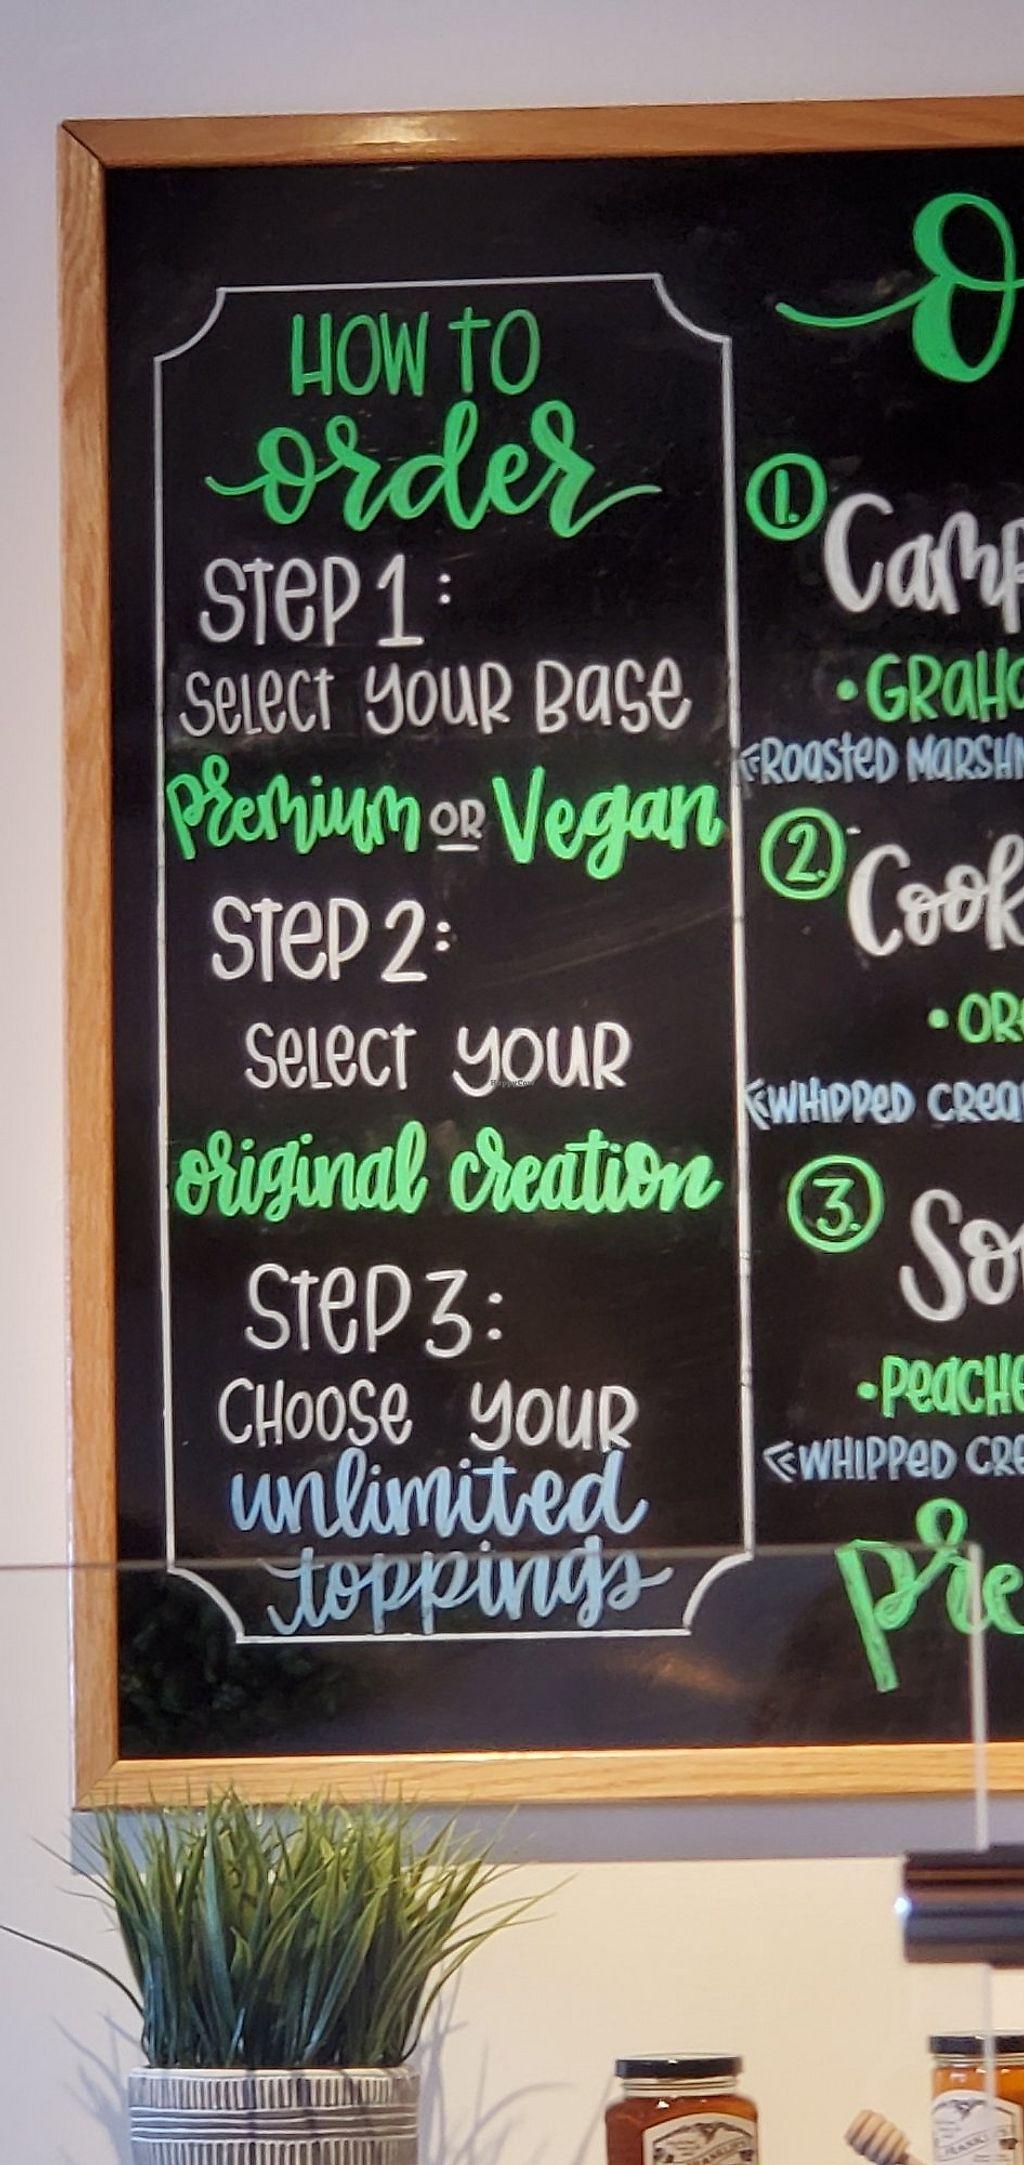 HOW TO
order
STEP 1:
SELECT YOUR BASE
Premium OR Vegan
STEP 2:
SELECT YOUR
original creation
STEP 3:
CHOOSE YOUR
unlimited
toppings
O
1.
Camp
• GRAHA
ROASTED MARSHM
2.
Cook
• ORE
WHIPPED CREA
3.
So
• PEACHE
WHIPPED CRE
Pre
HappyCow